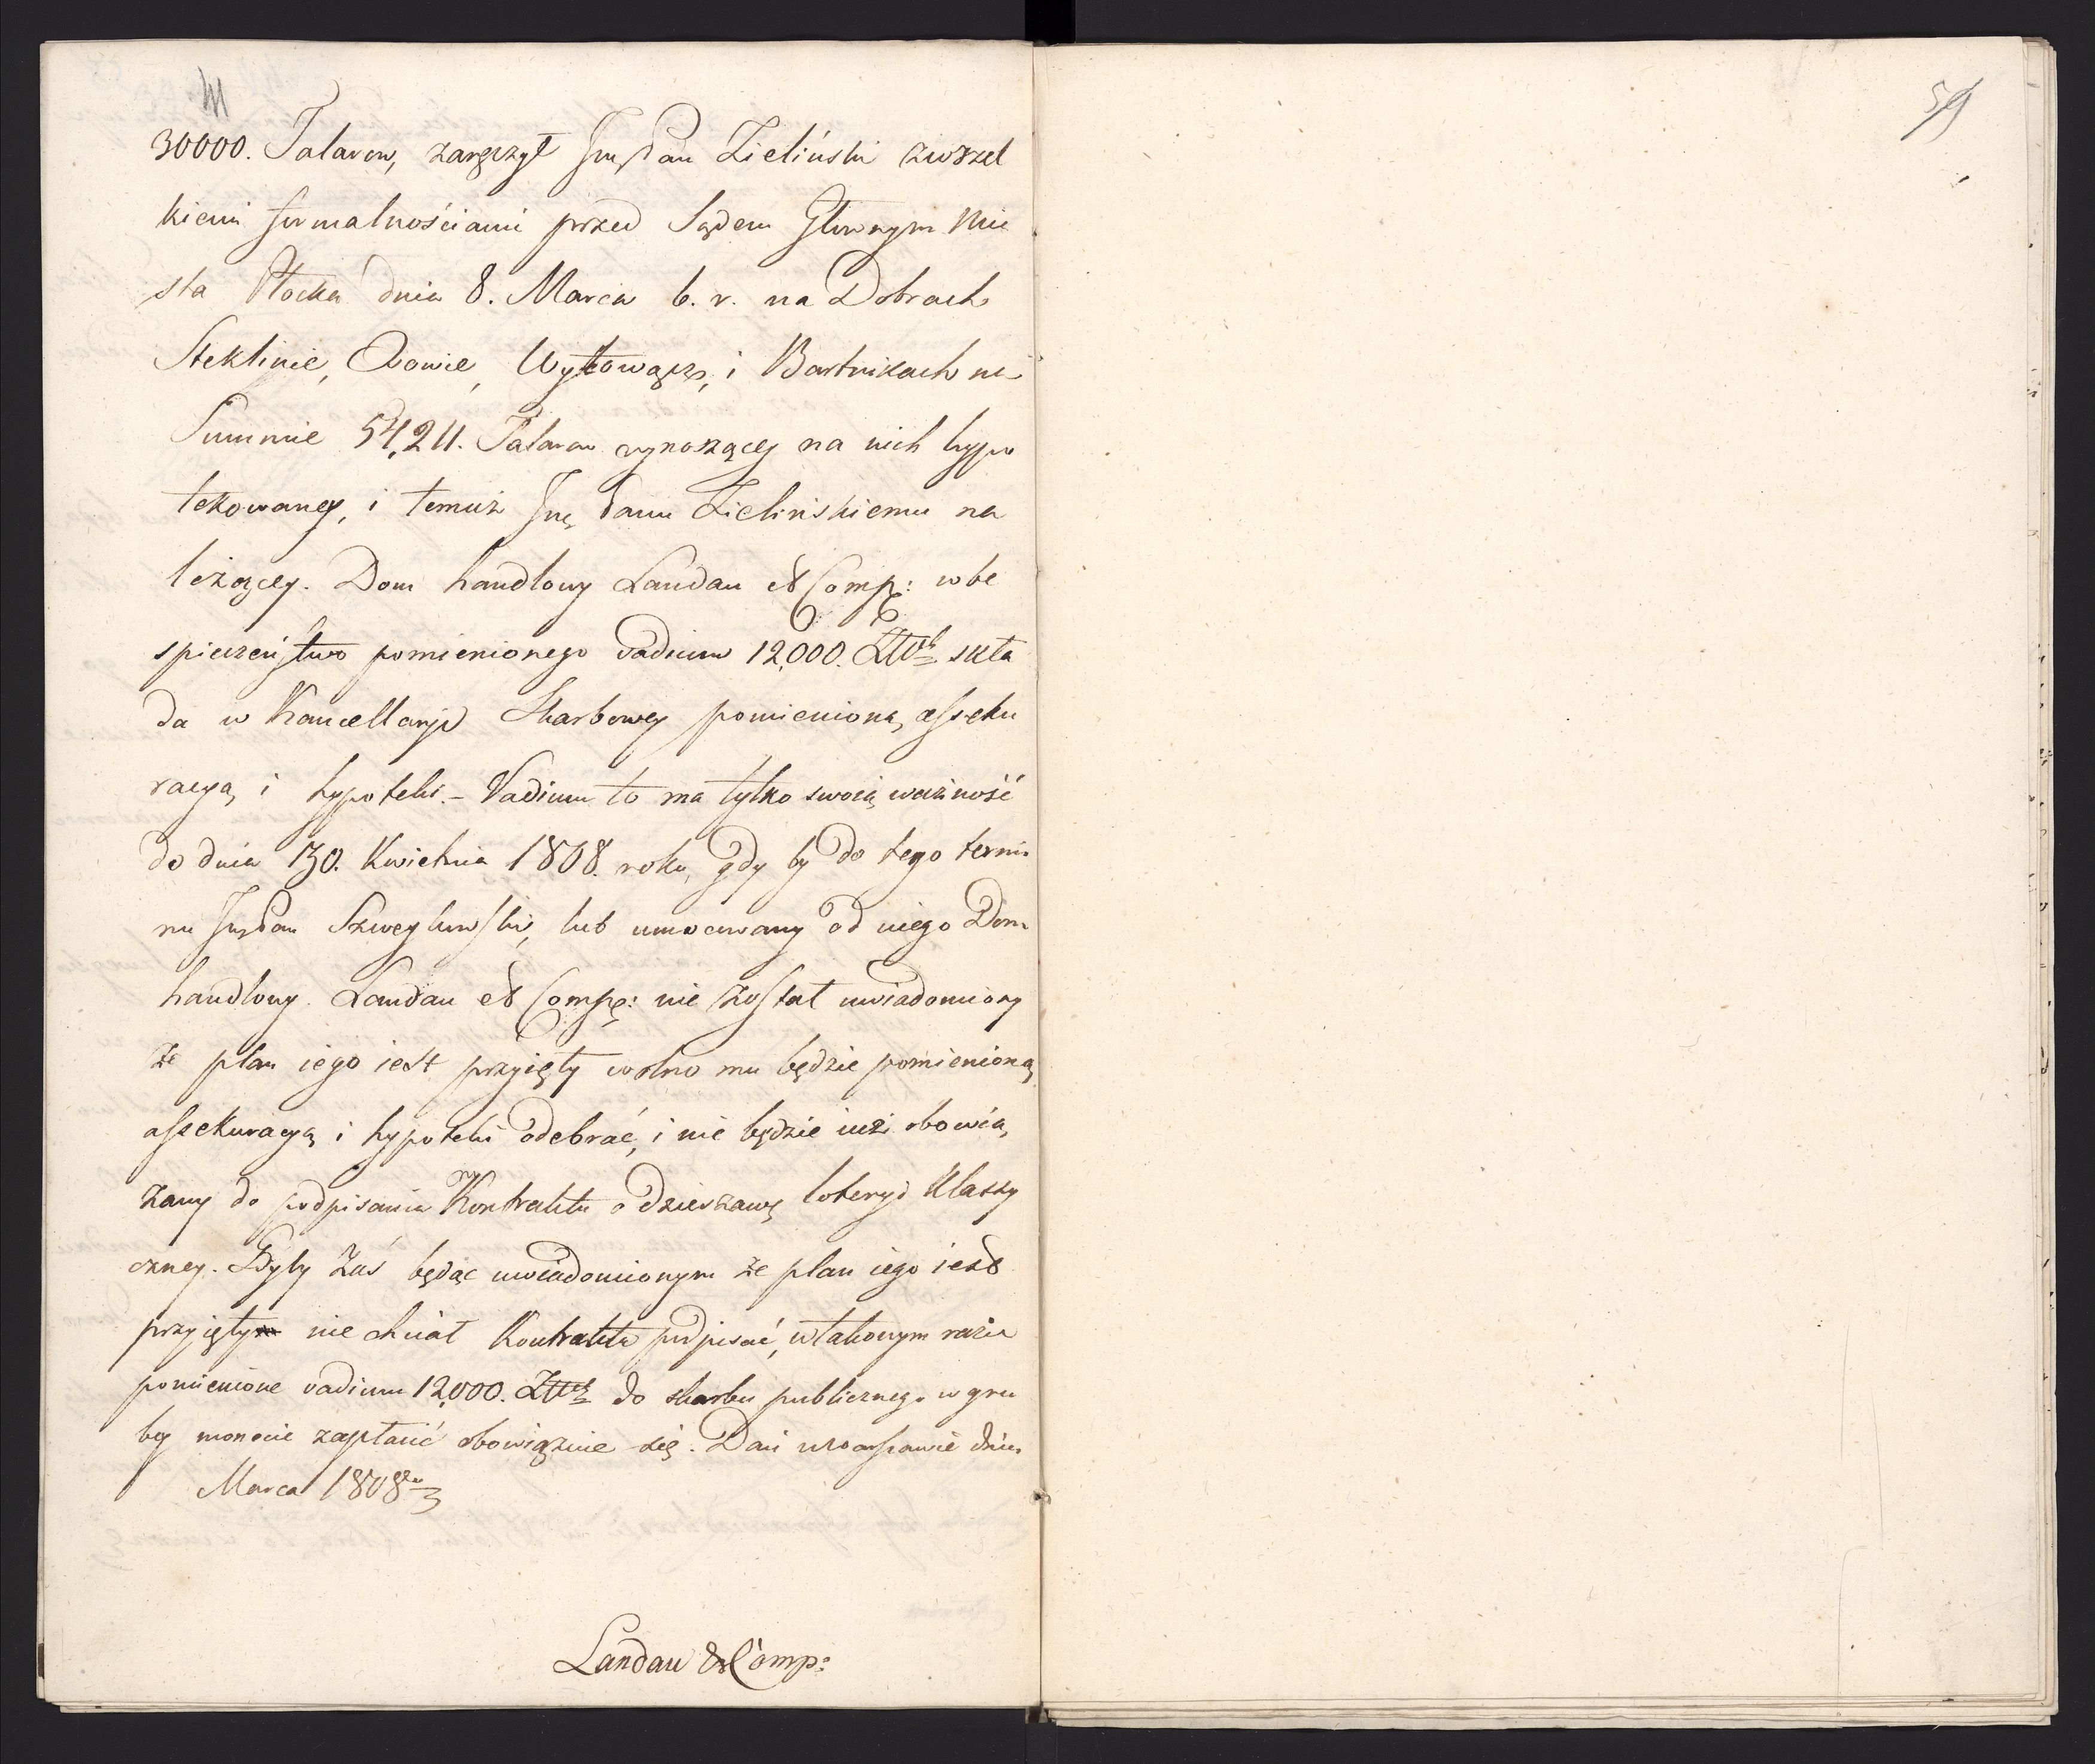 30000. Talarow, zaręczył Jmę Pan Zieliński zwszel
kiemi formalnościami przed Sądem Głownym Mia
sta Płocka dnia 8. Marca b. r. na Dobrach
Steklinie, Osowie, i Bartnikach na
Summie 54,211. Talarow wynoszącey na nich hypo
tekowaney, i temuż Jmę Panu Zielińskiemu na
leżącey. Dom handlowy Landau et Comp: w be
spieczeństwo pomienionego vadium 12,000. skła
da w Kancellaryi Skarbowey pomienioną asseku
racyą i hypoteki. – Vadium to ma tylko swoią ważność
do dnia 30. Kwietnia 1808. roku, gdy by do tego termi
nu Jmę Pan Szweykowski, lub umocowany od niego Dom
handlowy. Landau et Comp: nie został uwiadomiony
że plan iego iest przyięty wolno mu będzie pomienioną
assekuracyą i hypoteki odebrać, i nie będzie iuż obowią
zany do podpisania Kontraktu o dzierzawę loteryi Klassy
czney. Gdyby zaś będąc uwiadomionym że plan iego iest
przyięty nie chciał Kontraktu podpisać, w takowym razie
pomienione vadium 12,000. do skarbu publicznego w gru
bey monecie zapłacić obowiązuie się. Dan w Warszawie dnia
Marca 1808
Landau & Comp:
59